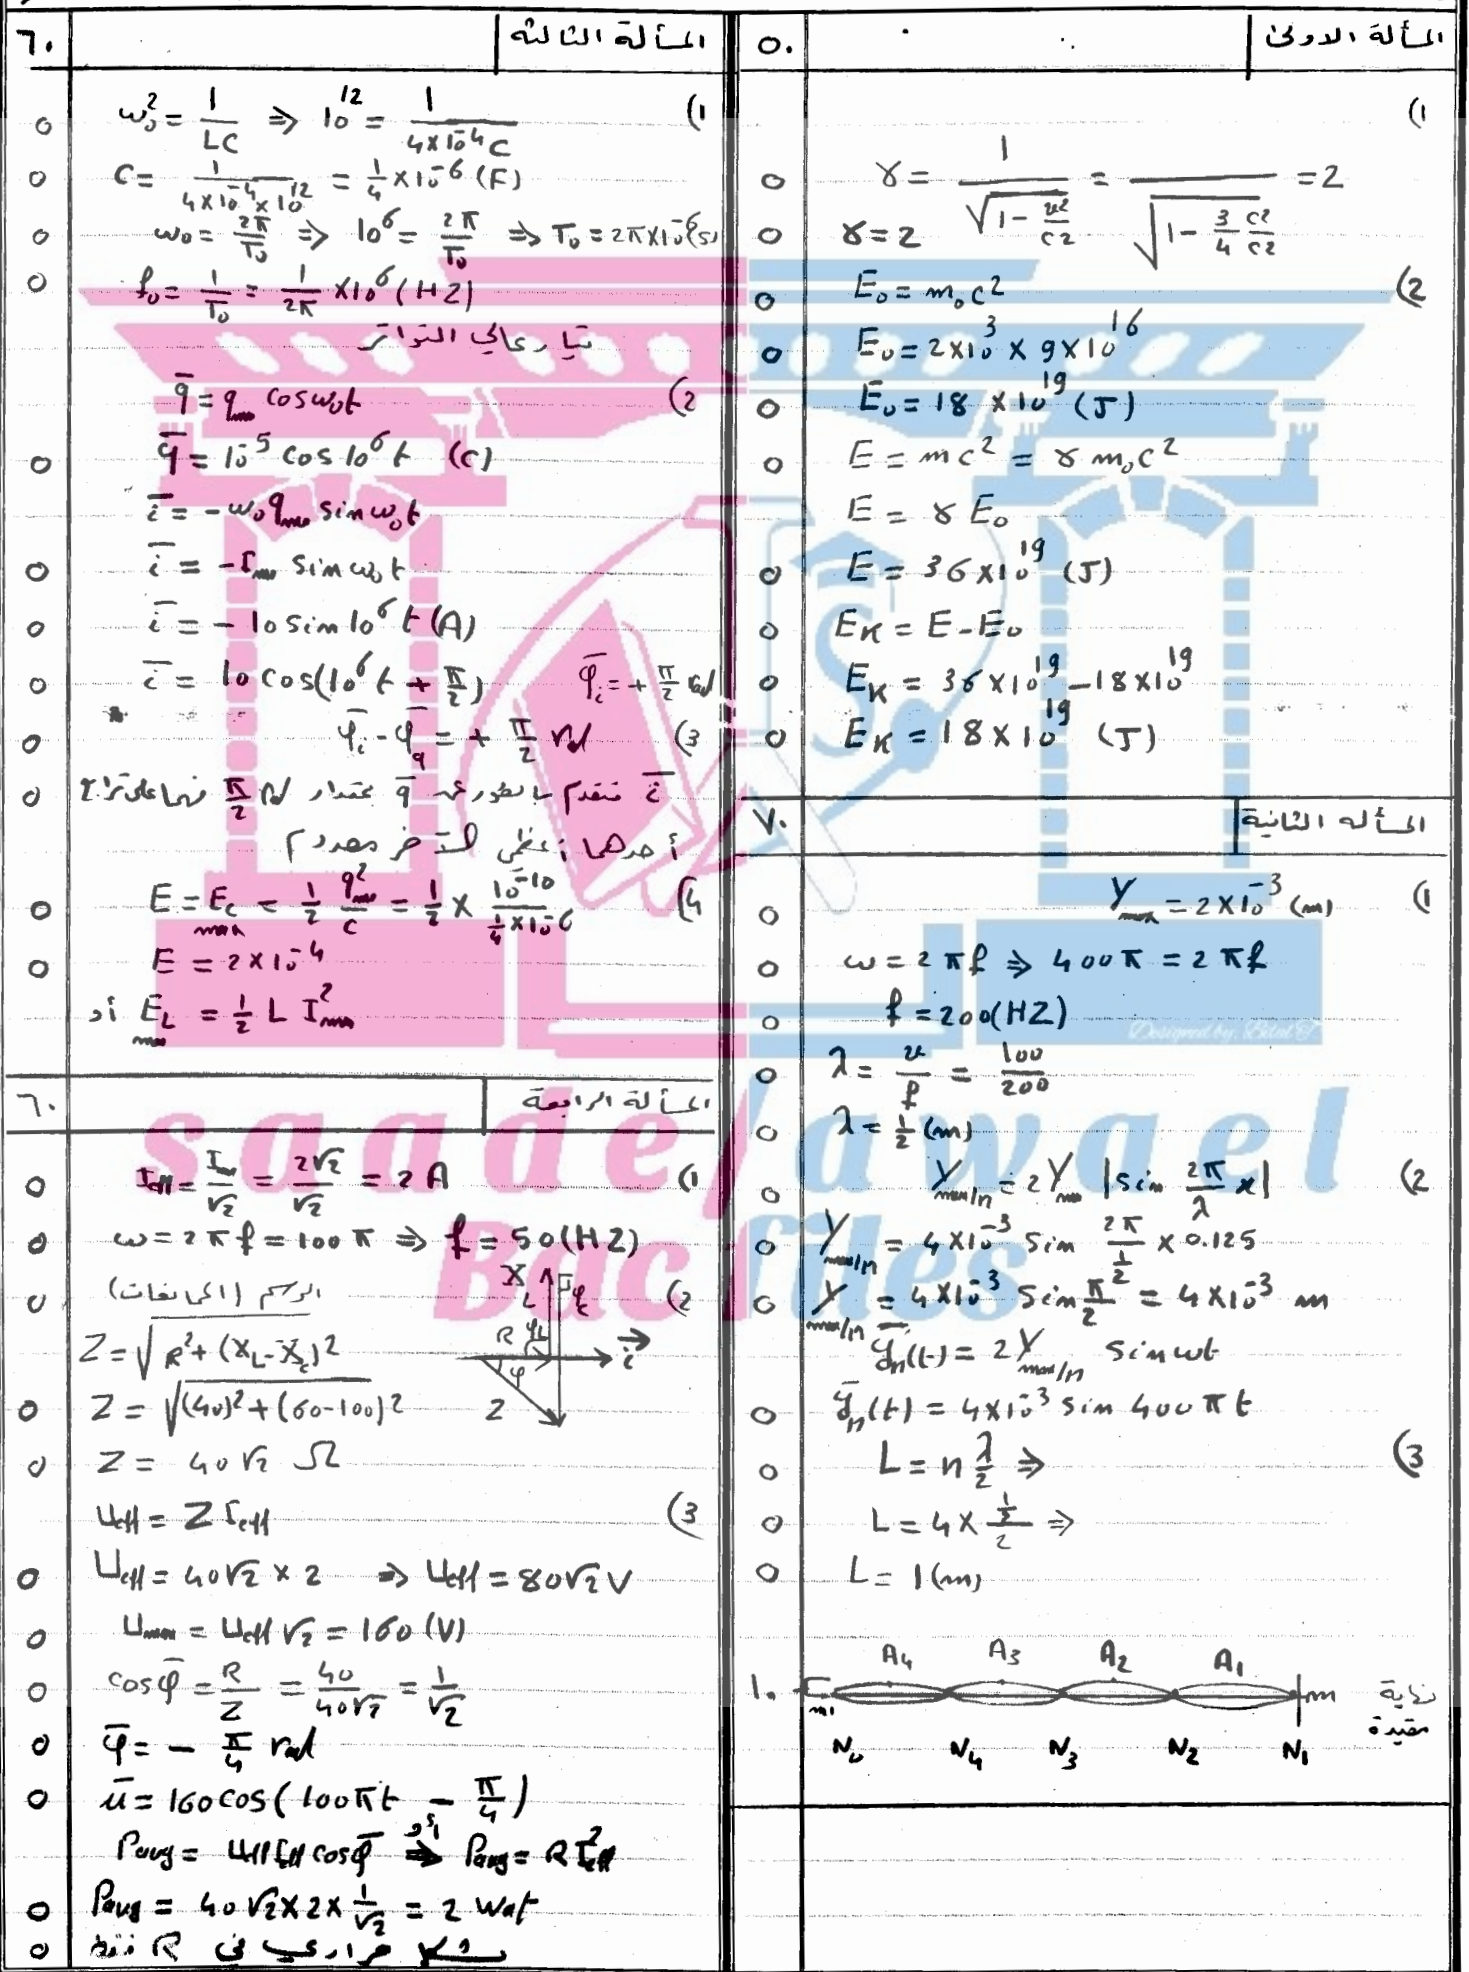 المسألة الاولى
٥٠
(1
γ = 1/√(1 - v²/c²) = 1/√(1 - 3/4 c²/c²) = 2
γ = 2
(2
E₀ = m₀c²
E₀ = 2×10³ × 9×10¹⁶
E₀ = 18 × 10¹⁹ (J)
E = mc² = γ m₀c²
E = γ E₀
E = 36×10¹⁹ (J)
E_K = E - E₀
E_K = 36×10¹⁹ - 18×10¹⁹
E_K = 18×10¹⁹ (J)
المسألة الثانية
٧٠
(1 Y_max = 2×10⁻³ (m)
ω = 2πf ⇒ 400π = 2πf
f = 200(HZ)
λ = v/f = 100/200
λ = 1/2 (m)
(2 Y_max/n = 2Y_max |sin 2π/λ x|
Y_max/n = 4×10⁻³ sin 2π/(1/2) × 0.125
Y_max/n = 4×10⁻³ sin π/2 = 4×10⁻³ m
ȳ_n(t) = 2Y_max/n sin ωt
ȳ_n(t) = 4×10⁻³ sin 400πt
(3 L = n λ/2 ⇒
L = 4 × (1/2)/2 ⇒
L = 1(m)
A4 A3 A2 A1
١٠ m' m نهاية مقيدة
N₀ N4 N3 N2 N1
المسألة الثالثة
٦٠
(1 ω₀² = 1/LC ⇒ 10¹² = 1/(4×10⁻⁴C)
C = 1/(4×10⁻⁴×10¹²) = 1/4 ×10⁻⁶ (F)
ω₀ = 2π/T₀ ⇒ 10⁶ = 2π/T₀ ⇒ T₀ = 2π×10⁻⁶(s)
f₀ = 1/T₀ = 1/2π ×10⁶ (HZ)
تيار عالي التواتر
(2 q̄ = q_max cos ω₀t
q̄ = 10⁻⁵ cos 10⁶ t (C)
ī = -ω₀ q_max sin ω₀t
ī = -I_max sin ω₀t
ī = -10 sin 10⁶ t (A)
ī = 10 cos(10⁶ t + π/2) φ̄_i = + π/2 rad
(3 φ̄_i - φ̄_q = + π/2 rad
ī متقدم بالطور عن q̄ بمقدار π/2 rad فهما على ترابع
أحدهما أعظمي الآخر معدوم
(4 E = E_C max = 1/2 q²_max/C = 1/2 × 10⁻¹⁰/(1/4×10⁻⁶)
E = 2×10⁻⁴
أو E_L max = 1/2 L I²_max
المسألة الرابعة
٦٠
(1 I_eff = I_max/√2 = 2√2/√2 = 2 A
ω = 2πf = 100π ⇒ f = 50(HZ)
(2 الرسم (الممانعات)
X_L X_C
R φ Z i
Z = √(R² + (X_L - X_C)²)
Z = √((40)² + (60-100)²)
Z = 40√2 Ω
(3 U_eff = Z I_eff
U_eff = 40√2 × 2 ⇒ U_eff = 80√2 V
U_max = U_eff √2 = 160 (V)
cos φ̄ = R/Z = 40/40√2 = 1/√2
φ̄ = - π/4 rad
ū = 160 cos(100πt - π/4)
P_avg = U_eff I_eff cos φ̄ أو ⇒ P_avg = R I²_eff
P_avg = 40√2×2×1/√2 = 2 Wat
بشكل حراري في R فقط
saade/awael
Bac files
Designed by: Bilal T